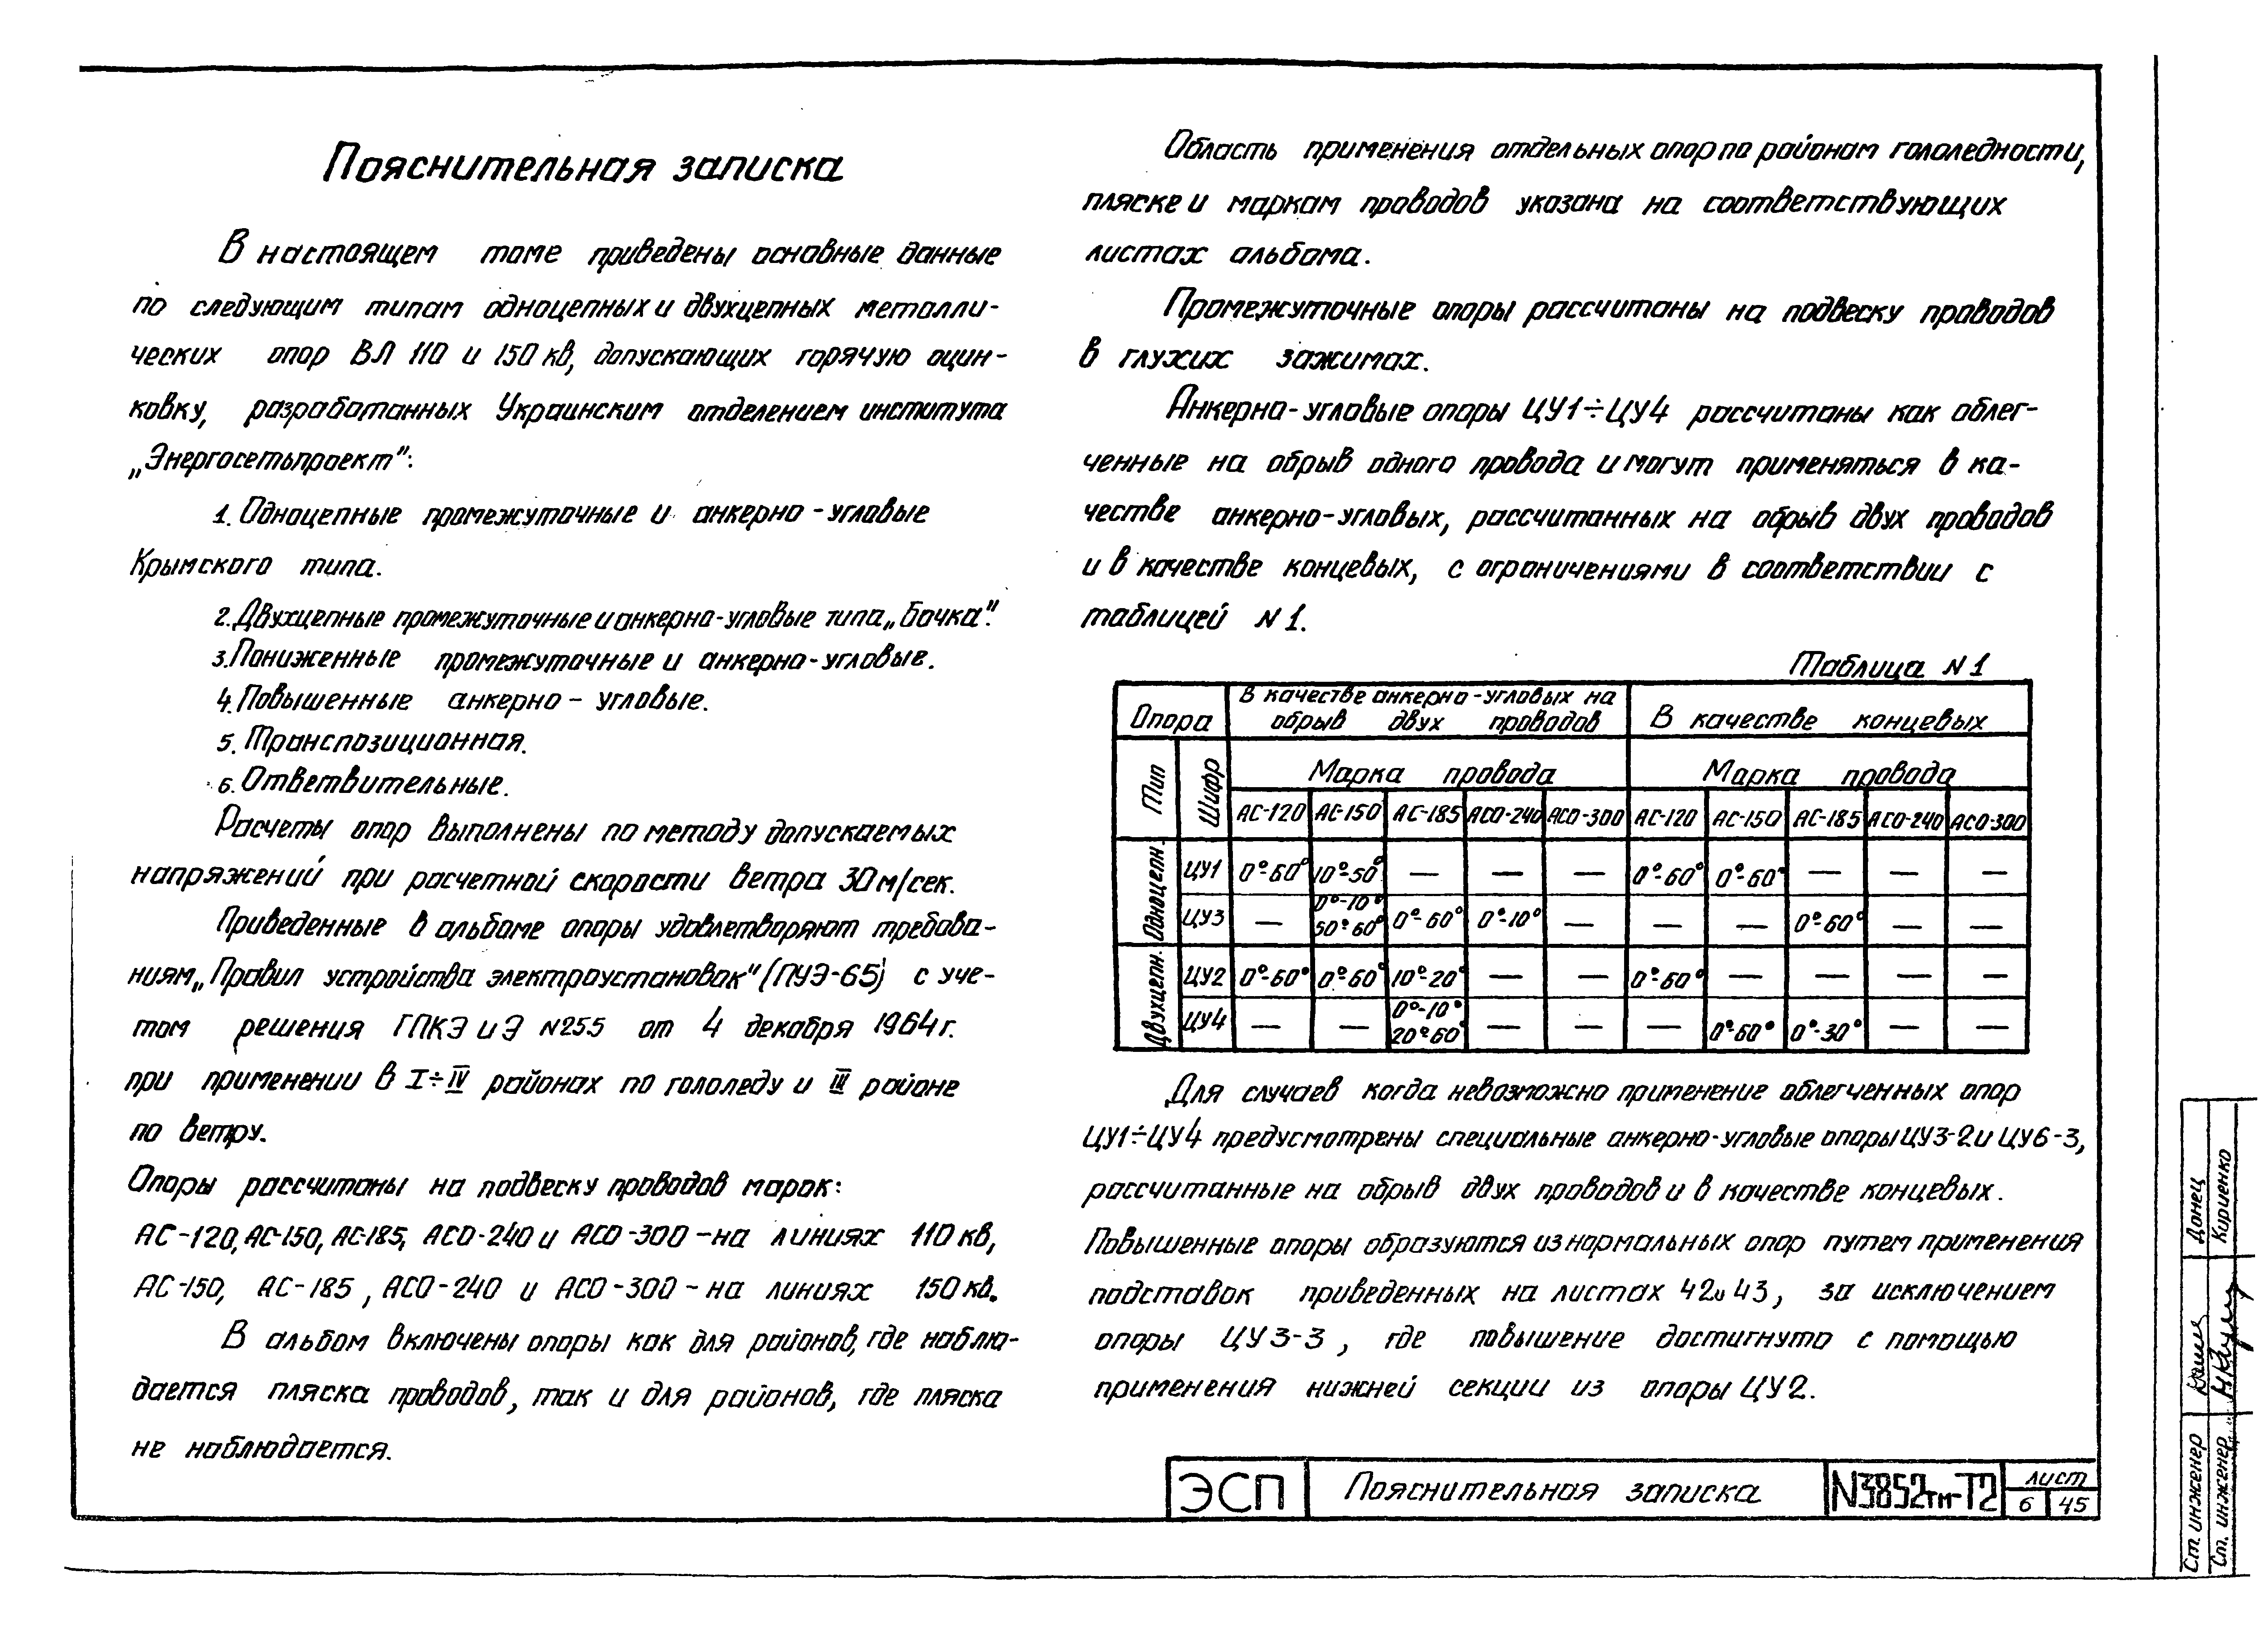 Пояснительная записка
В настоящем томе приведены основные данные
по следующим типам одноцепных и двухцепных металли-
ческих опор ВЛ 110 и 150 кв, допускающих горячую оцин-
ковку, разработанных Украинским отделением института
„Энергосетьпроект":
1. Одноцепные промежуточные и анкерно-угловые
Крымского типа.
2. Двухцепные промежуточные и анкерно-угловые типа „Бочка".
3. Пониженные промежуточные и анкерно-угловые.
4. Повышенные анкерно-угловые.
5. Транспозиционная.
6. Ответвительные.
Расчеты опор выполнены по методу допускаемых
напряжений при расчетной скорости ветра 30 м/сек.
Приведенные в альбоме опоры удовлетворяют требова-
ниям „Правил устройства электроустановок" (ПУЭ-65) с уче-
том решения ГПКЭ и Э N255 от 4 декабря 1964г.
при применении в I÷IV районах по гололеду и III районе
по ветру.
Опоры рассчитаны на подвеску проводов марок:
АС-120, АС-150, АС-185, АСО-240 и АСО-300 - на линиях 110 кв,
АС-150, АС-185, АСО-240 и АСО-300 - на линиях 150 кв.
В альбом включены опоры как для районов, где наблю-
дается пляска проводов, так и для районов, где пляска
не наблюдается.
Область применения отдельных опор по районам гололедности,
пляске и маркам проводов указана на соответствующих
листах альбома.
Промежуточные опоры рассчитаны на подвеску проводов
в глухих зажимах.
Анкерно-угловые опоры ЦУ1÷ЦУ4 рассчитаны как облег-
ченные на обрыв одного провода и могут применяться в ка-
честве анкерно-угловых, рассчитанных на обрыв двух проводов
и в качестве концевых, с ограничениями в соответствии с
таблицей N1.
Таблица N1
Опора В качестве анкерно-угловых на обрыв двух проводов В качестве концевых
Тип Шифр Марка провода Марка провода
АС-120 АС-150 АС-185 АСО-240 АСО-300 АС-120 АС-150 АС-185 АСО-240 АСО-300
Одноцепн. ЦУ1 0°-60° 10°-50° — — — 0°-60° 0°-60° — — —
ЦУ3 — 0°-10° 50°-60° 0°-60° 0°-10° — — — 0°-60° — —
Двухцепн. ЦУ2 0°-60° 0°-60° 10°-20° — — 0°-60° — — — —
ЦУ4 — — 0°-10° 20°-60° — — — 0°-60° 0°-30° — —
Для случаев когда невозможно применение облегченных опор
ЦУ1÷ЦУ4 предусмотрены специальные анкерно-угловые опоры ЦУ3-2 и ЦУ6-3,
рассчитанные на обрыв двух проводов и в качестве концевых.
Повышенные опоры образуются из нормальных опор путем применения
подставок приведенных на листах 42 и 43, за исключением
опоры ЦУ3-3, где повышение достигнуто с помощью
применения нижней секции из опоры ЦУ2.
ЭСП Пояснительная записка N3852тм-Т2 лист
6 45
Ст. инженер Донец
Ст. инженер Кириенко